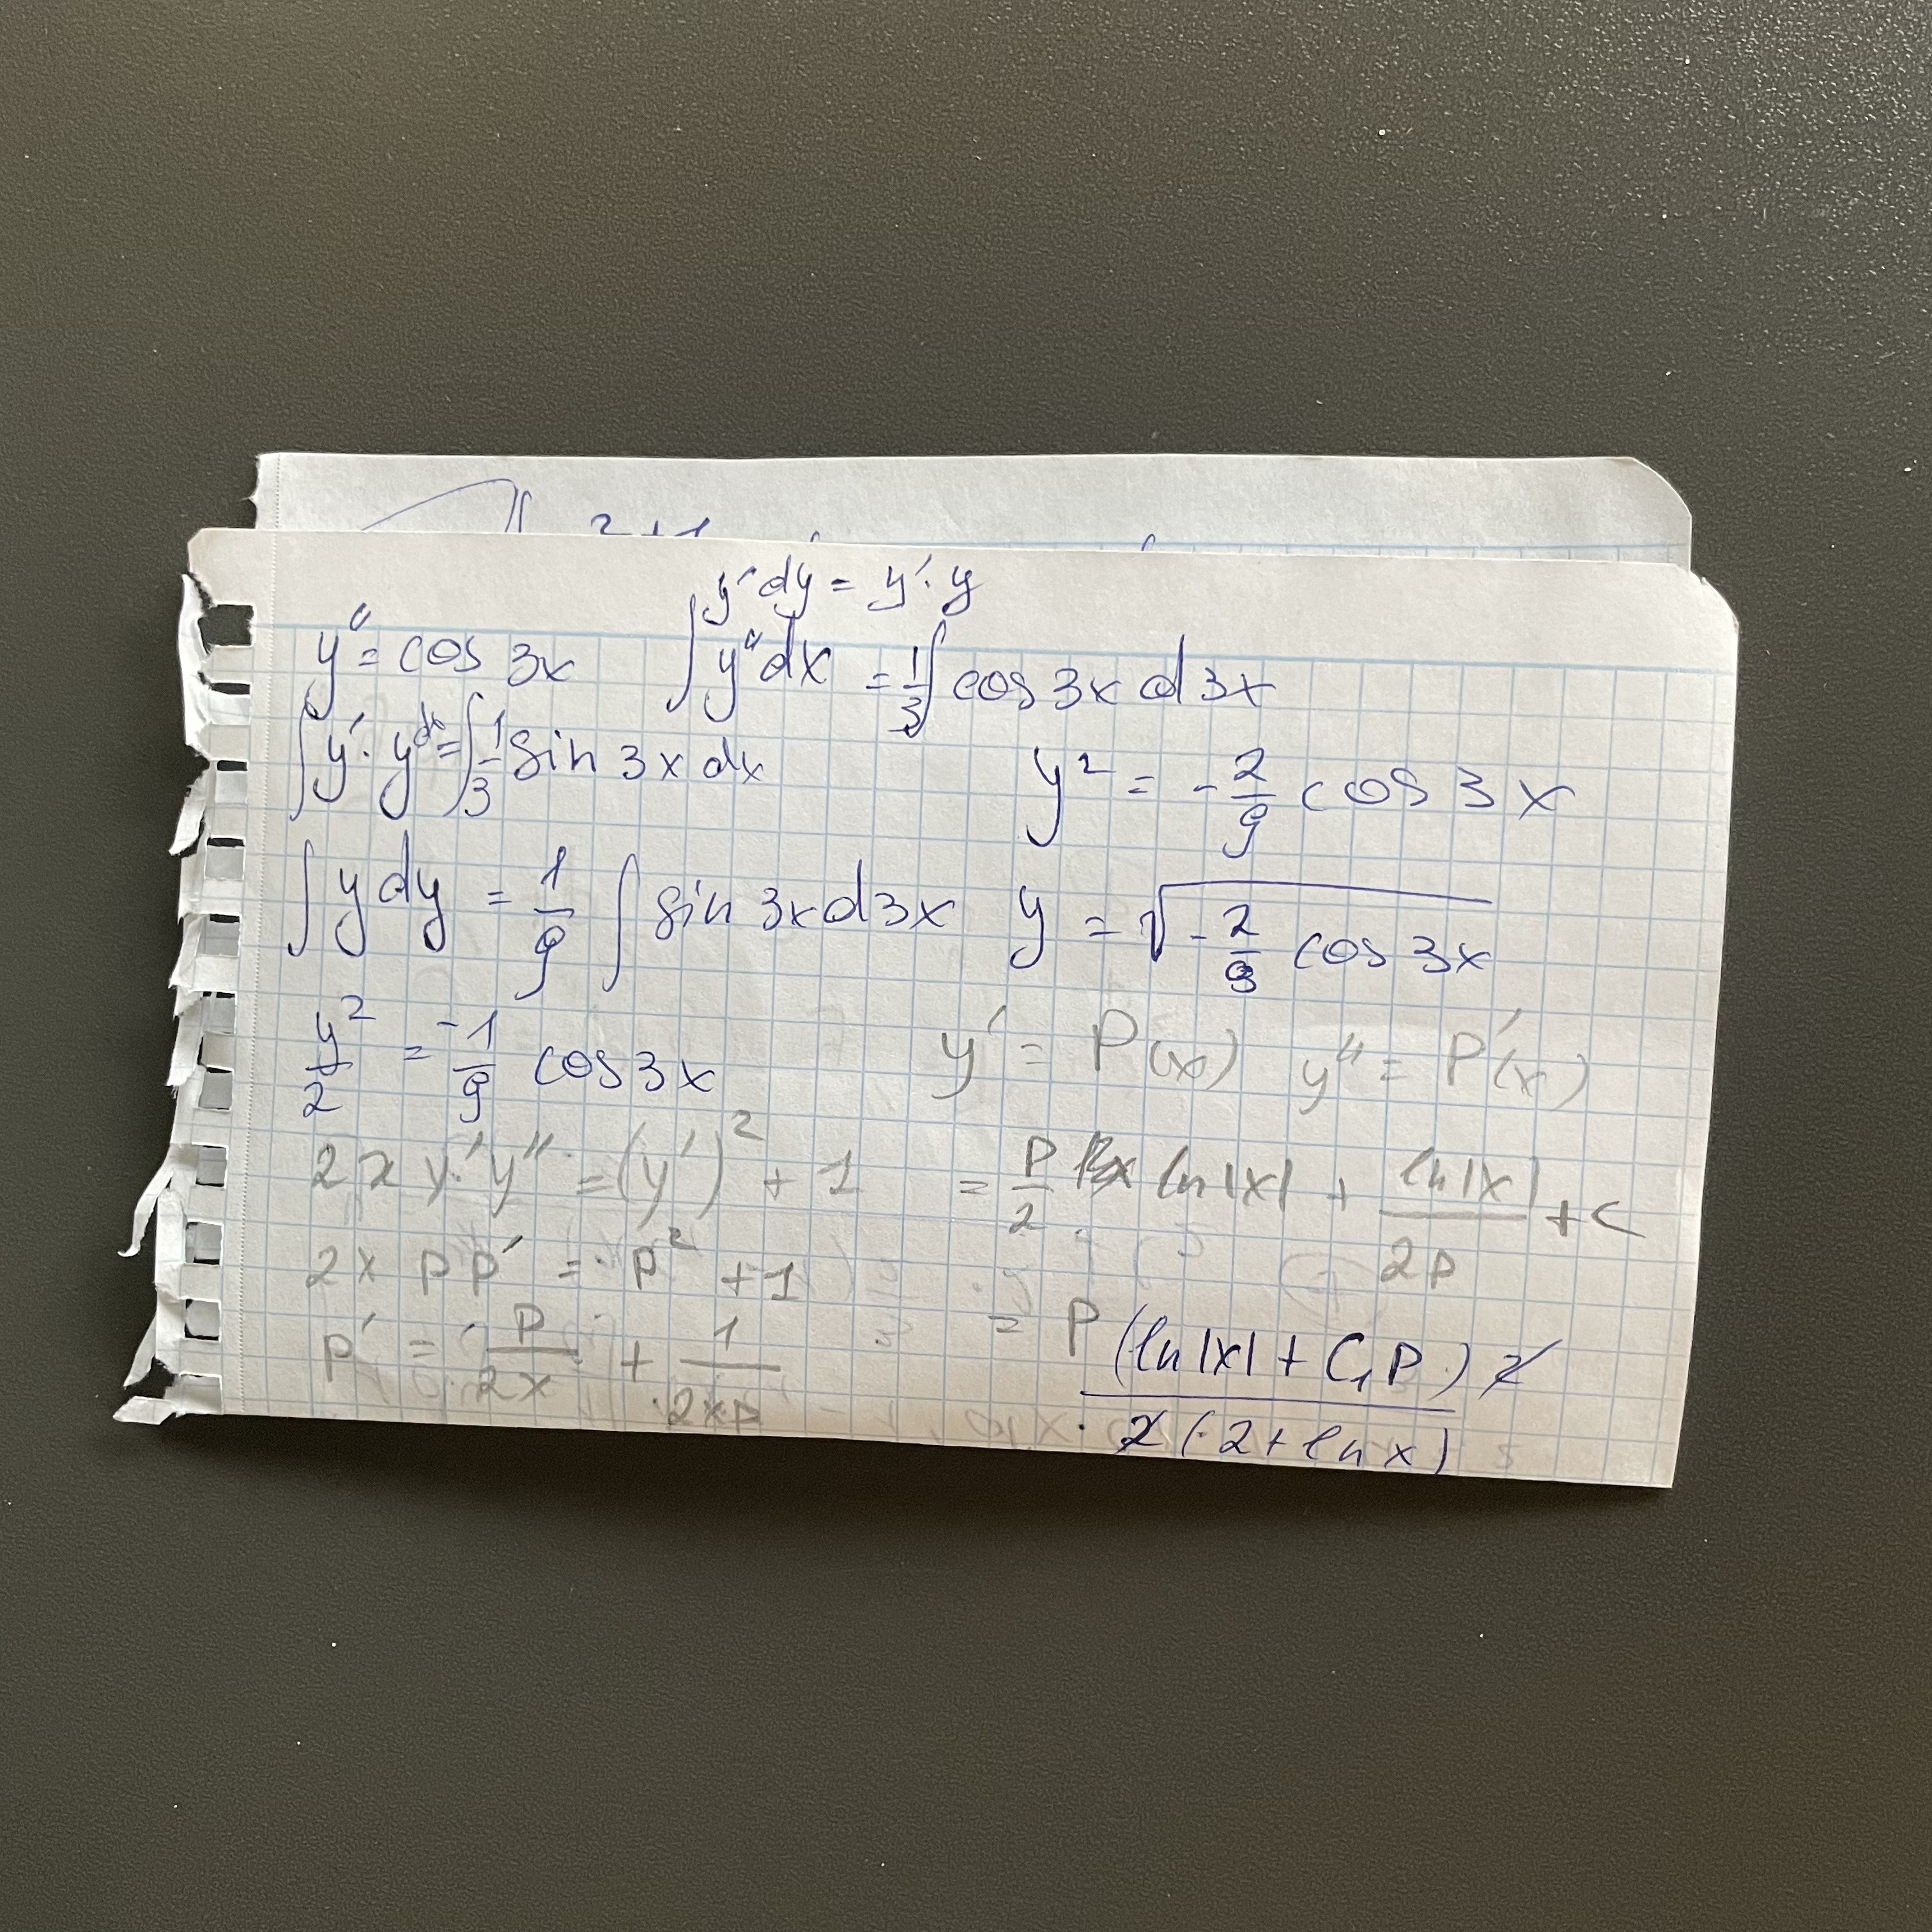 2+1
y' dy = y' · y
y'' = cos 3x ∫ y'' dx = 1/3 ∫ cos 3x d3x
∫ y' · y dx = ∫ 1/3 sin 3x dx y² = - 2/9 cos 3x
∫ y dy = 1/9 ∫ sin 3x d3x y = √(- 2/9 cos 3x)
y²/2 = -1/9 cos 3x y' = P(x) y'' = P'(x)
2x y' y'' = (y')² + 1 = P/2 ln|x| + ln|x|/2P + C
2x P P' = P² + 1
P' = P/2x + 1/2xP = P (ln|x| + C₁P) 2 / 2(-2 + ln x)